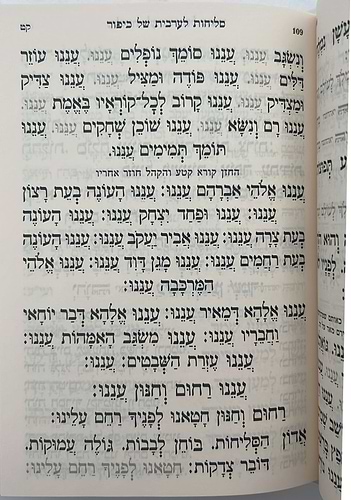 109 סליחות לערבית של כיפור קט
וְנִשְׂגָּב עֲנֵנוּ. עֲנֵנוּ סוֹמֵךְ נוֹפְלִים עֲנֵנוּ. עֲנֵנוּ עוֹזֵר
דַּלִּים עֲנֵנוּ. עֲנֵנוּ פּוֹדֶה וּמַצִּיל עֲנֵנוּ. עֲנֵנוּ צַדִּיק
וּמַצְדִּיק עֲנֵנוּ. עֲנֵנוּ קָרוֹב לְכָל־קוֹרְאָיו בֶּאֱמֶת עֲנֵנוּ.
עֲנֵנוּ רָם וְנִשָּׂא עֲנֵנוּ. עֲנֵנוּ שׁוֹכֵן שְׁחָקִים עֲנֵנוּ. עֲנֵנוּ
תּוֹמֵךְ תְּמִימִים עֲנֵנוּ.
החזן קורא קטע והקהל חוזר אחריו
עֲנֵנוּ אֱלֹהֵי אַבְרָהָם עֲנֵנוּ: עֲנֵנוּ הָעוֹנֶה בְּעֵת רָצוֹן
עֲנֵנוּ: עֲנֵנוּ וּפַחַד יִצְחָק עֲנֵנוּ: עֲנֵנוּ הָעוֹנֶה
בְּעֵת צָרָה עֲנֵנוּ: עֲנֵנוּ אֲבִיר יַעֲקֹב עֲנֵנוּ: עֲנֵנוּ הָעוֹנֶה
בְּעֵת רַחֲמִים עֲנֵנוּ: עֲנֵנוּ מָגֵן דָּוִד עֲנֵנוּ: עֲנֵנוּ אֱלֹהֵי
הַמֶּרְכָּבָה עֲנֵנוּ:
עֲנֵנוּ אֱלָהָא דְמֵאִיר עֲנֵנוּ: עֲנֵנוּ אֱלָהָא דְּבַר יוֹחַאי
וַחֲבֵרָיו עֲנֵנוּ: עֲנֵנוּ מִשְׂגַּב הָאִמָּהוֹת עֲנֵנוּ:
עֲנֵנוּ עֶזְרַת הַשְּׁבָטִים עֲנֵנוּ:
עֲנֵנוּ רַחוּם וְחַנּוּן עֲנֵנוּ:
רַחוּם וְחַנּוּן חָטָאנוּ לְפָנֶיךָ רַחֵם עָלֵינוּ:
אֲדוֹן הַסְּלִיחוֹת. בּוֹחֵן לְבָבוֹת. גּוֹלֶה עֲמוּקוֹת.
דּוֹבֵר צְדָקוֹת: חָטָאנוּ לְפָנֶיךָ רַחֵם עָלֵינוּ: